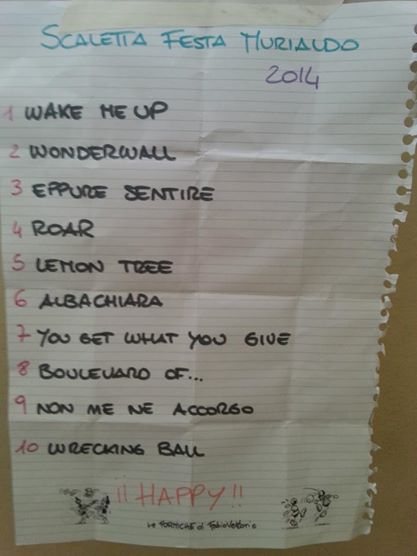 SCALETTA FESTA MURIALDO
2014
1 WAKE ME UP
2 WONDERWALL
3 EPPURE SENTIRE
4 ROAR
5 LEMON TREE
6 ALBACHIARA
7 YOU GET WHAT YOU GIVE
8 BOULEVARD OF...
9 NON ME NE ACCORGO
10 WRECKING BALL
¡¡HAPPY!!
Le FORMICHE di Fabio Vettori